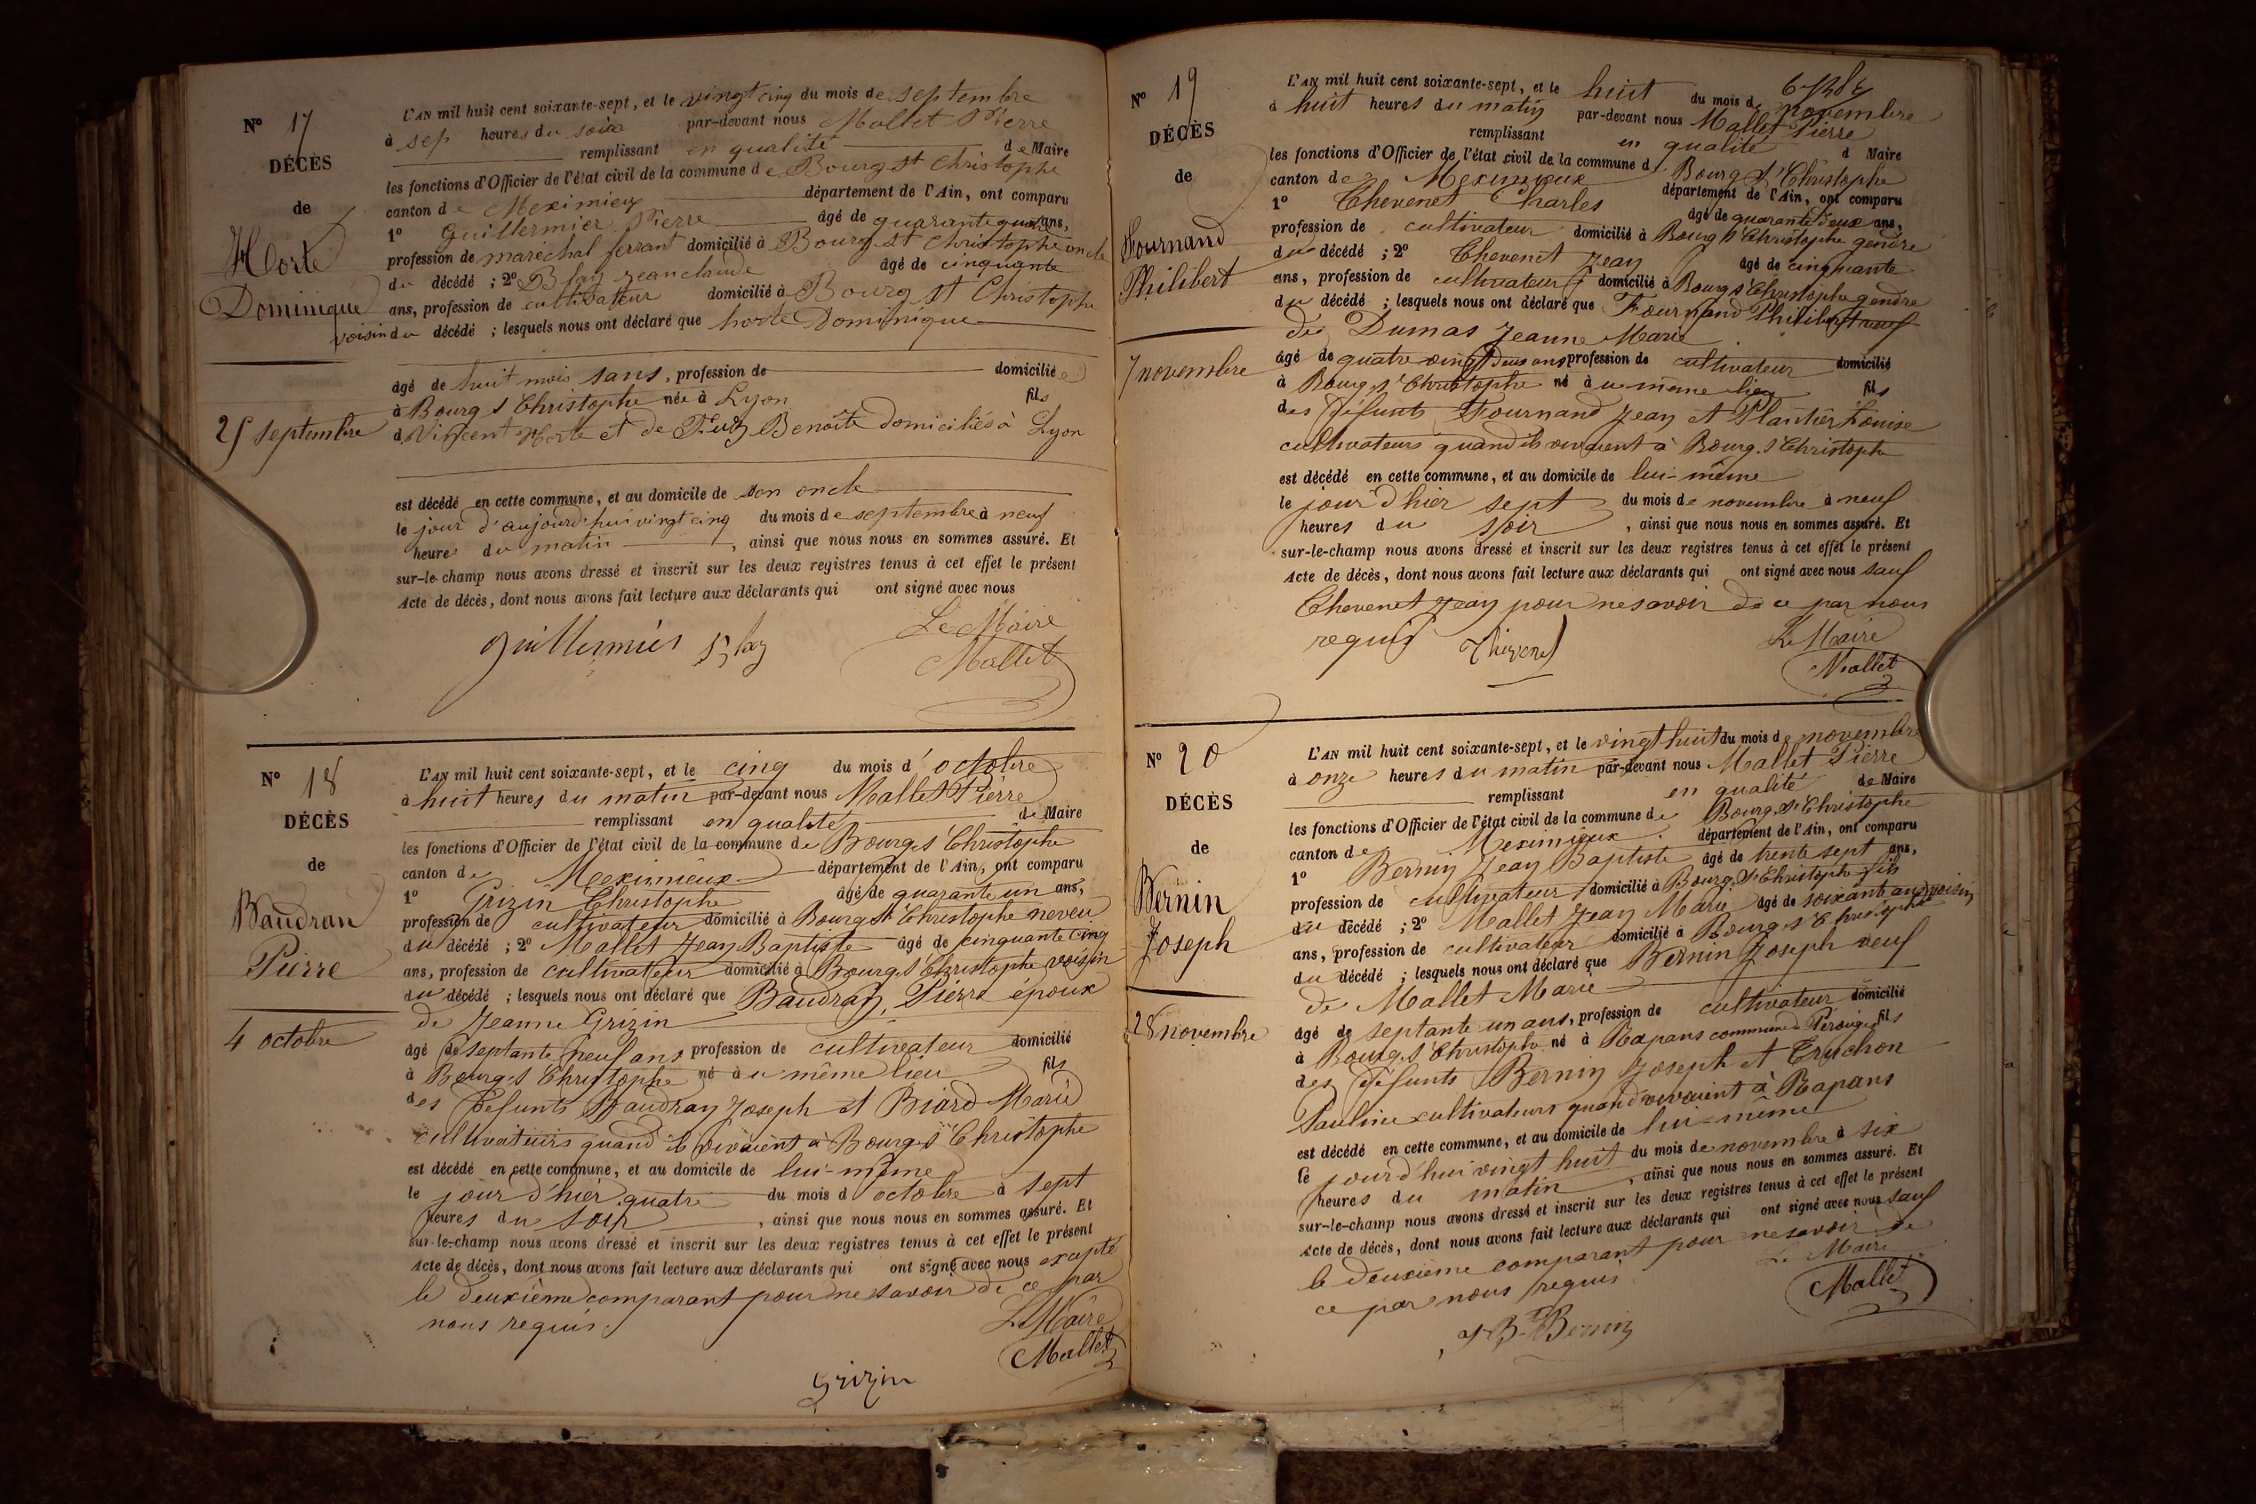 N° 17
DÉCÈS
de
Horte
Dominique
25 septembre
L'AN mil huit cent soixante-sept, et le vingt cinq du mois de septembre
à sep heures du soir par-devant nous Mallet Pierre
remplissant en qualité de Maire
les fonctions d'Officier de l'état civil de la commune de Bourg St Christophe
canton de Meximieux département de l'Ain, ont comparu
1° Guillermier Pierre âgé de quarante ans,
profession de maréchal ferrant domicilié à Bourg St Christophe oncle
du décédé ; 2° Blay Jean claude âgé de cinquante
ans, profession de cultivateur domicilié à Bourg St Christophe
voisin du décédé ; lesquels nous ont déclaré que horte Dominique
âgé de huit mois sans, profession de domicilié
à Bourg St Christophe née à Lyon fils
d Vincent Horte et de Benoîte domiciliés à Lyon
est décédé en cette commune, et au domicile de son oncle
le jour d'aujourd'hui vingt cinq du mois de septembre à neuf
heures du matin, ainsi que nous nous en sommes assuré. Et
sur-le-champ nous avons dressé et inscrit sur les deux registres tenus à cet effet le présent
Acte de décès, dont nous avons fait lecture aux déclarants qui ont signé avec nous
Le Maire
Guillermier Blay Mallet
N° 18
DÉCÈS
de
Baudran
Pierre
4 octobre
L'AN mil huit cent soixante-sept, et le cinq du mois d'octobre
à huit heures du matin par-devant nous Mallet Pierre
remplissant en qualité de Maire
les fonctions d'Officier de l'état civil de la commune de Bourg St Christophe
canton de Meximieux département de l'Ain, ont comparu
1° Grizin Christophe âgé de quarante un ans,
profession de cultivateur domicilié à Bourg St Christophe neveu
du décédé ; 2° Mallet Jean Baptiste âgé de cinquante cinq
ans, profession de cultivateur domicilié à Bourg St Christophe voisin
du décédé ; lesquels nous ont déclaré que Baudran Pierre époux
de Jeanne Grizin
âgé de septante neuf ans profession de cultivateur domicilié
à Bourg St Christophe né à u même lieu fils
des défunts Baudran Joseph et Biard Marie
cultivateurs quand ils vivaient à Bourg St Christophe
est décédé en cette commune, et au domicile de lui-même
le jour d'hier quatre du mois d octobre à sept
heures du soir, ainsi que nous nous en sommes assuré. Et
sur-le-champ nous avons dressé et inscrit sur les deux registres tenus à cet effet le présent
Acte de décès, dont nous avons fait lecture aux déclarants qui ont signé avec nous excepté
le deuxième comparant pour ne savoir de ce par
nous requis.
Le Maire
Mallet
Grizin
N° 19
DÉCÈS
de
Fournand
Philibert
7 novembre
L'AN mil huit cent soixante-sept, et le huit du mois de novembre
à huit heures du matin par-devant nous Mallet Pierre
remplissant en qualité d Maire
les fonctions d'Officier de l'état civil de la commune d Bourg St Christophe
canton de Meximieux département de l'Ain, ont comparu
1° Chevenet Charles âgé de quarante deux ans,
profession de cultivateur domicilié à Bourg St Christophe gendre
du décédé ; 2° Chevenet Jean âgé de cinquante
ans, profession de cultivateur domicilié à Bourg St Christophe gendre
du décédé ; lesquels nous ont déclaré que Fournand Philibert veuf
de Dumas Jeanne Marie
âgé de quatre vingt deux ans profession de cultivateur domicilié
à Bourg St Christophe né à u même lieu fils
des défunts Fournand Jean et Plantier Louise
cultivateurs quand ils vivaient à Bourg St Christophe
est décédé en cette commune, et au domicile de lui-même
le jour d'hier sept du mois de novembre à neuf
heures du soir, ainsi que nous nous en sommes assuré. Et
sur-le-champ nous avons dressé et inscrit sur les deux registres tenus à cet effet le présent
Acte de décès, dont nous avons fait lecture aux déclarants qui ont signé avec nous sauf
Chevenet Jean pour ne savoir de ce par nous
requis
Le Maire
Mallet
N° 20
DÉCÈS
de
Bernin
Joseph
28 novembre
L'AN mil huit cent soixante-sept, et le vingt huit du mois de novembre
à onze heures du matin par-devant nous Mallet Pierre
remplissant en qualité de Maire
les fonctions d'Officier de l'état civil de la commune de Bourg St Christophe
canton de Meximieux département de l'Ain, ont comparu
1° Bernin Jean Baptiste âgé de trente sept ans,
profession de cultivateur domicilié à Bourg St Christophe fils
du décédé ; 2° Mallet Jean Marie âgé de soixante ans voisin
ans, profession de cultivateur domicilié à Bourg St Christophe
du décédé ; lesquels nous ont déclaré que Bernin Joseph veuf
de Mallet Marie
âgé de septante un ans, profession de cultivateur domicilié
à Bourg St Christophe né à Rapans commune de Pérouges fils
des défunts Bernin Joseph et Truchon
Pauline cultivateurs quand vivaient à Rapans
est décédé en cette commune, et au domicile de lui-même
le jourd'hui vingt huit du mois de novembre à six
heures du matin, ainsi que nous nous en sommes assuré. Et
sur-le-champ nous avons dressé et inscrit sur les deux registres tenus à cet effet le présent
Acte de décès, dont nous avons fait lecture aux déclarants qui ont signé avec nous sauf
le deuxième comparant pour ne savoir de
ce par nous requis
Le Maire
Mallet
J B Bernin